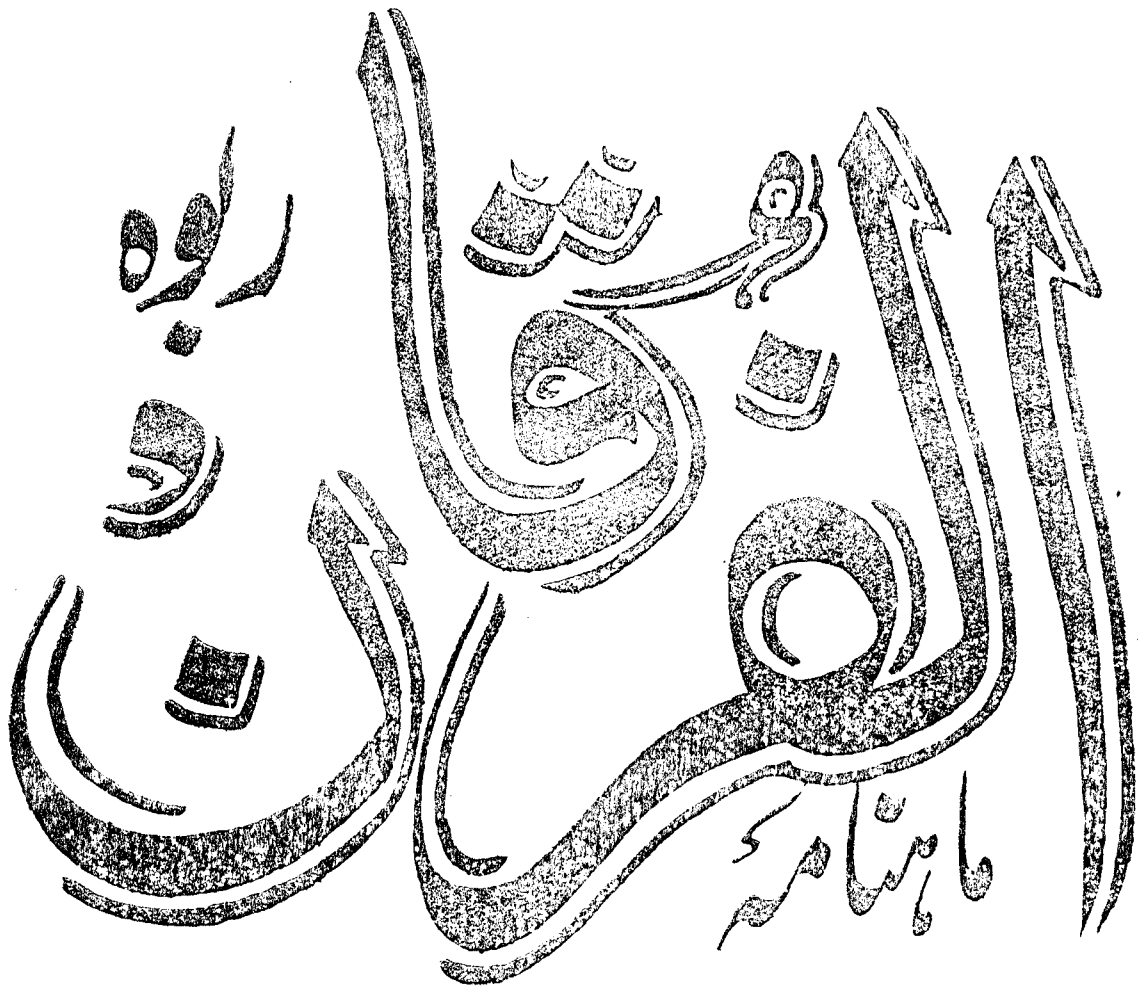 ماہنامہ
الفُرقانُ
ربوہ